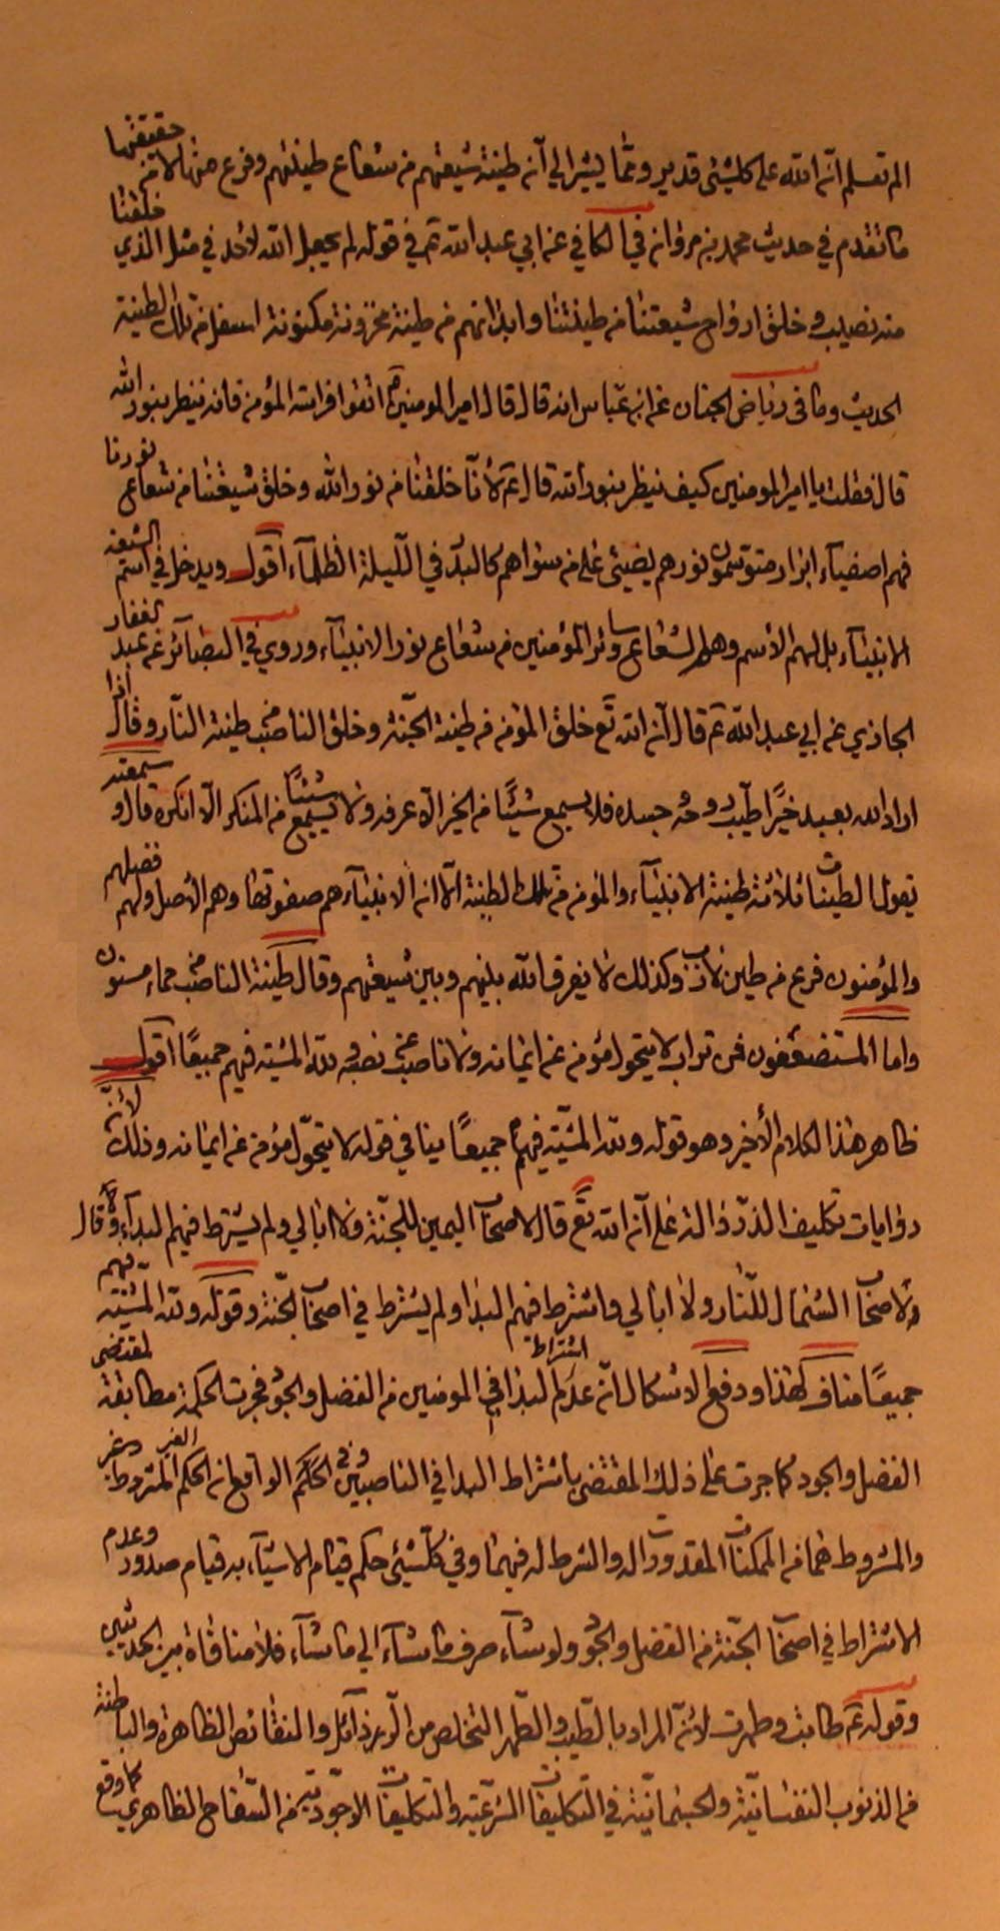 الم تعلم انّ الله على كلّ شيء قدير وممّا يشير الى انّ طينة شيعتهم من شعاع طينتهم وفرع منها لا من حقيقتها
ما تقدم في حديث محمد بن مروان في الكافي عن ابي عبد الله ع في قوله لم يجعل الله لاحد في مثل الذي خلقنا
منه نصيب وخلق ارواح شيعتنا من طينتنا وابدانهم من طينة مخزونة مكنونة اسفل من تلك الطينة
الحديث وما في رياض الجنان عن ابن عباس انه قال قال امير المومنين ع اتقوا فراسة المؤمن فانه ينظر بنور الله
قال فقلت يا امير المومنين كيف ينظر بنور الله قال ع لأنّا خلقنا من نور الله وخلق شيعتنا من شعاع نورنا
فهم اصفياء ابرار متوسّمون نورهم يضيئ على من سواهم كالبدر في اللّيلة الظلماء اقول ويدخل في اسم الشيعة
الانبياء بل لهم الأسم وهلم لشعاع وسائر المؤمنين من شعاع نور الانبياء وروي في البصائر عن عبد الغفار
الجازي عن ابي عبد الله ع قال انّ الله تع خلق المؤمن من طينة الجنّة وخلق الناصب من طينة النّار وقال اذا
اراد الله بعبد خيرًا طيّب روحه وجسده فلا يسمع شيئًا من الخير الّا عرفه ولا يسمع شيئًا من المنكر الّا انكره قال وسمعته
يقول الطينات ثلاثة طينة الانبياء والمؤمن من تلك الطينة الّا انّ الانبياء هم صفوتها وهم الأصل ولهم فضلهم
والمؤمنون فرع من طين لازب وكذلك لا يفرق الله بينهم وبين شيعتهم وقال طينة الناصب من حماء مسنون
واما المستضعفون فمن تراب لا يتحول مؤمن عن ايمانه ولا ناصب عن نصبه ولله المشية فيهم جميعًا اقول
ظاهر هذا الكلام الأخير وهو قوله ولله المشيّة فيهم جميعًا ينافي قوله لا يتحوّل مؤمن عن ايمانه وذلك لأنّ
روايات تكليف الذرّ دالة على انّ الله تع قال لاصحاب اليمين للجنّة ولا ابالي ولم يشترط فيهم البداء وقال
لاصحاب الشمال للنّار ولا ابالي واشترط فيهم البدا ولم يشترط في اصحاب الجنّة وقوله ولله المشيّة فيهم
جميعًا مناف لهذا ودفع الاشكال انّ عدم اشتراط البدا في المومنين من الفضل والجود فجرت الحكمة مطابقة لمقتضى
الفضل والجود كما جرت على ذلك المقتضى باشتراط البدا في الناصبين وفي الحكم الواقع انّ الحكم المشروط وغير
والمشروط هما من الممكنات المقدورات له والشرط له فيهما وفي كلّ شيئ حكم قيام الاشياء به قيام صدور وعدم
الاشتراط في اصحاب الجنّة من الفضل والجود ولو شاء صرف ما شاء الى ما شاء فلا منافاة بين الحديثين
وقوله ع طابت وطهرت لانّ المراد بالطيب والطّهر التخلص من الرّذائل والنقائص الظاهرة والباطنة
من الذنوب النفسانيّة والجسمانيّة في التكليفات الشرعيّة والتكليفات الوجوديّة من السّفاح الظاهري كما وقع